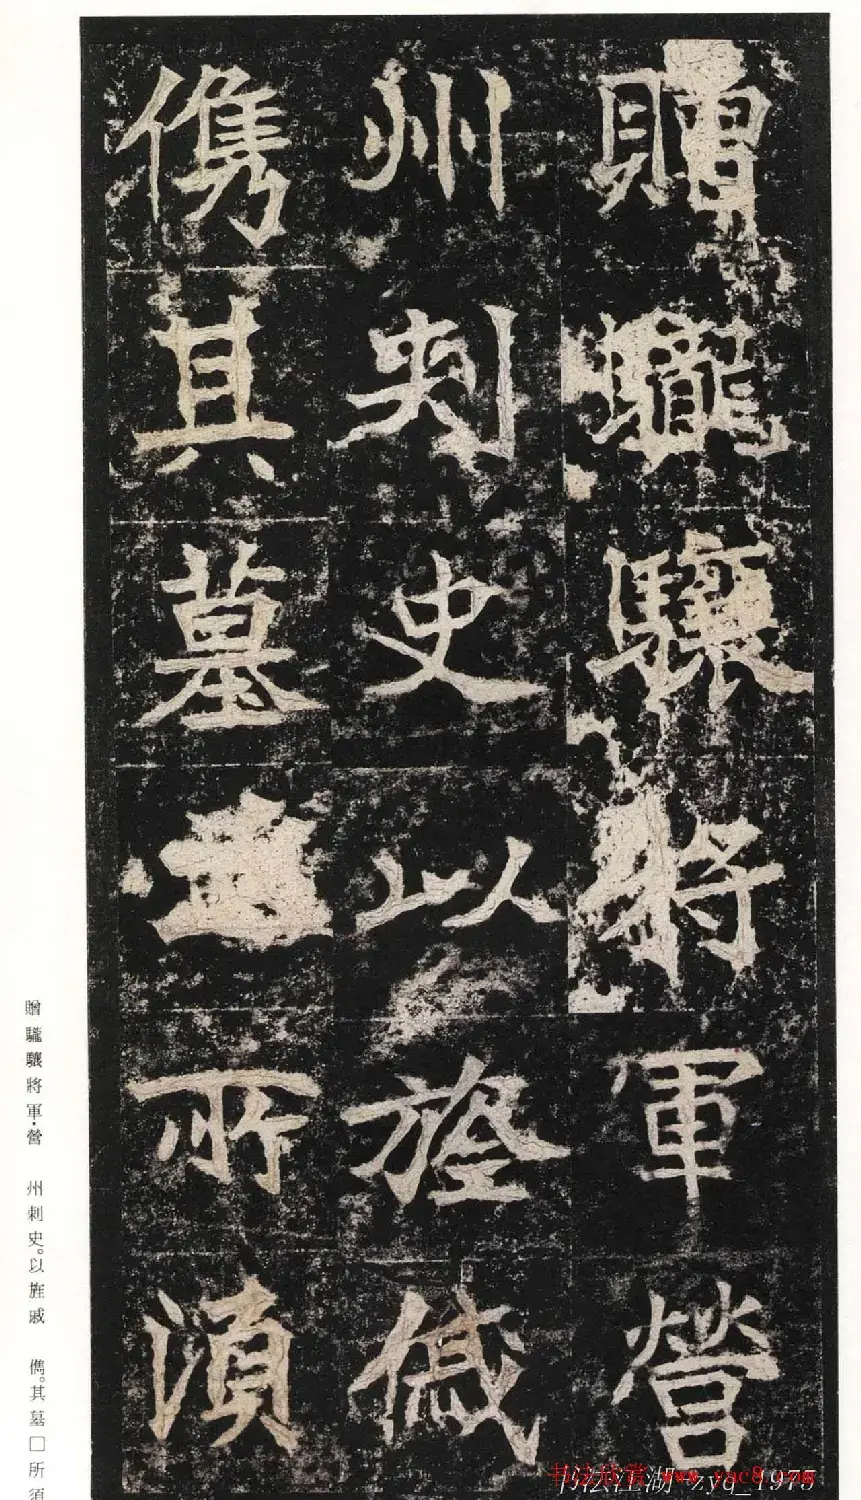 贈驡驤將軍營
州刾史以旌傶
儁其墓所湏
贈驡驤將軍·營 州刺史。以旌戚 儁。其墓□所須
书法欣赏 www.yac8.com
书法江湖 zyq_1975